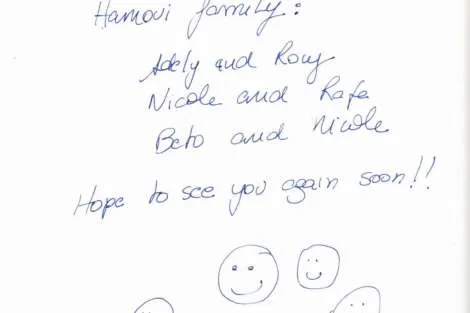 Hamoui family:
Adely and Rony
Nicole and Rafa
Beto and Nicole
Hope to see you again soon!!